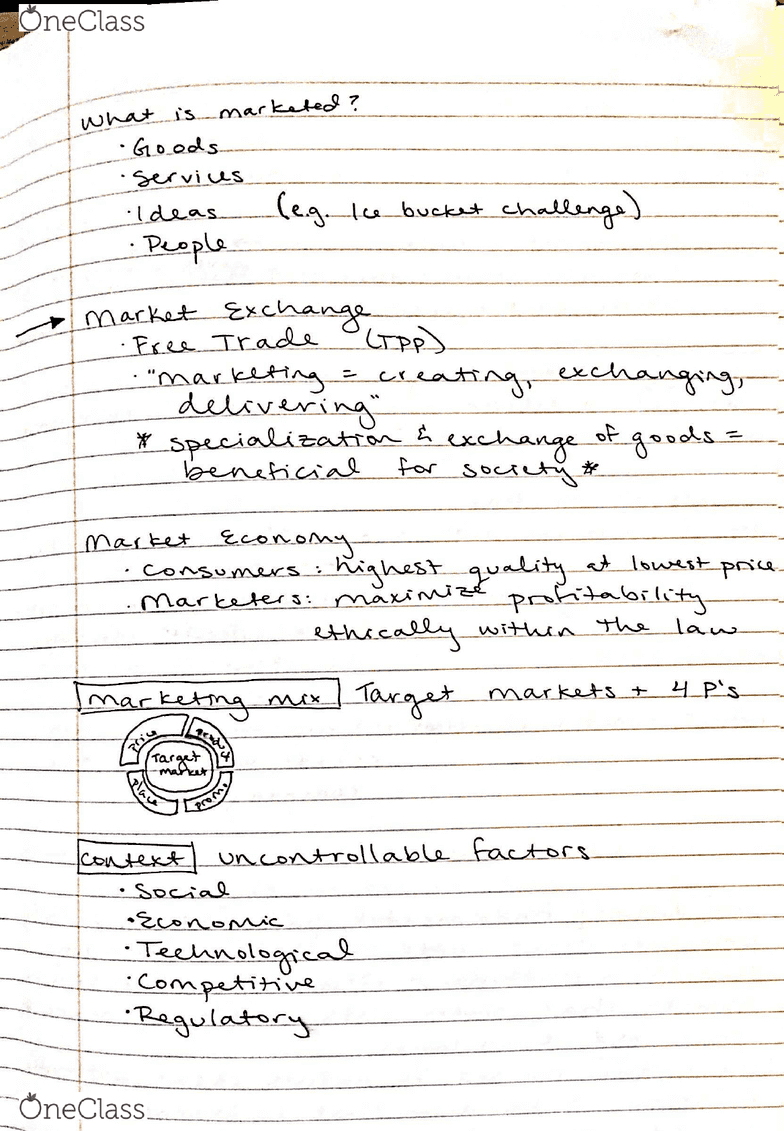 OneClass
What is marketed?
· Goods
· Services
· Ideas (e.g. Ice bucket challenge)
· People
Market Exchange
· Free Trade (TPP)
· "marketing = creating, exchanging,
delivering"
* specialization & exchange of goods =
beneficial for society *
Market Economy
· consumers: highest quality at lowest price
· Marketers: maximize profitability
ethically within the law
Marketing mix Target markets + 4 P's
Price
Product
Target
market
place
promo.
Context uncontrollable factors
· Social
· Economic
· Technological
· Competitive
· Regulatory
OneClass